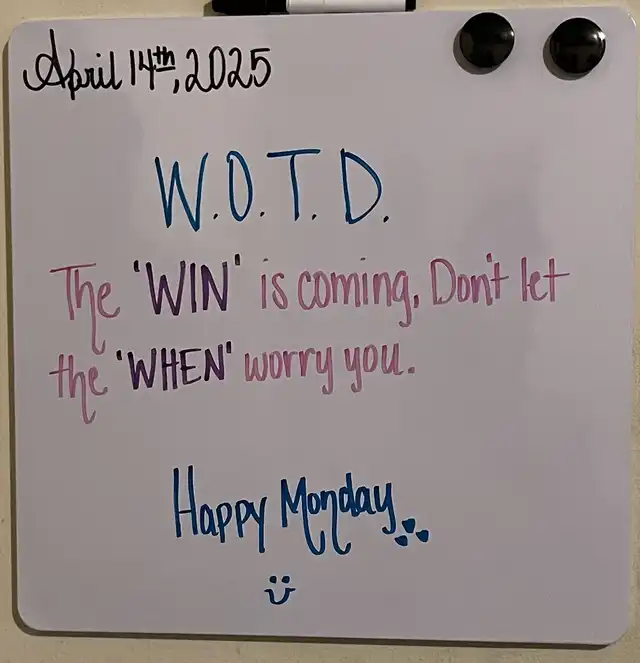 April 14th, 2025
W.O.T.D.
The 'WIN' is coming. Don't let
the 'WHEN' worry you.
Happy Monday